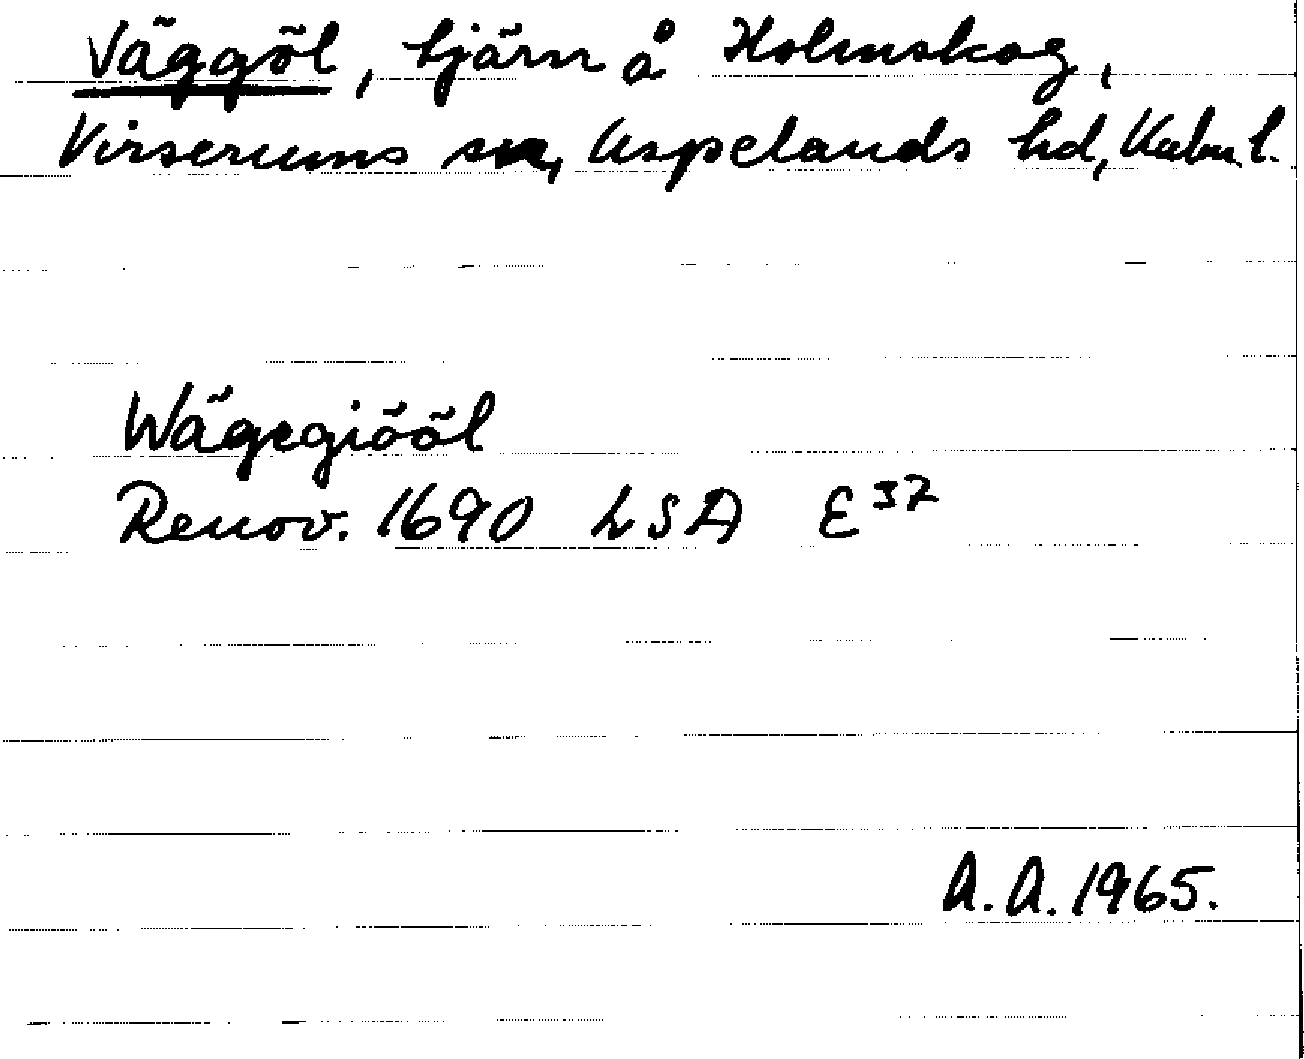 Väggöl, tjärn å Holmskog,
Virserums sn, Aspelands hd, Kalm. l.
Wägegiööl
Renov. 1690 LSA E 37
A.A. 1965.